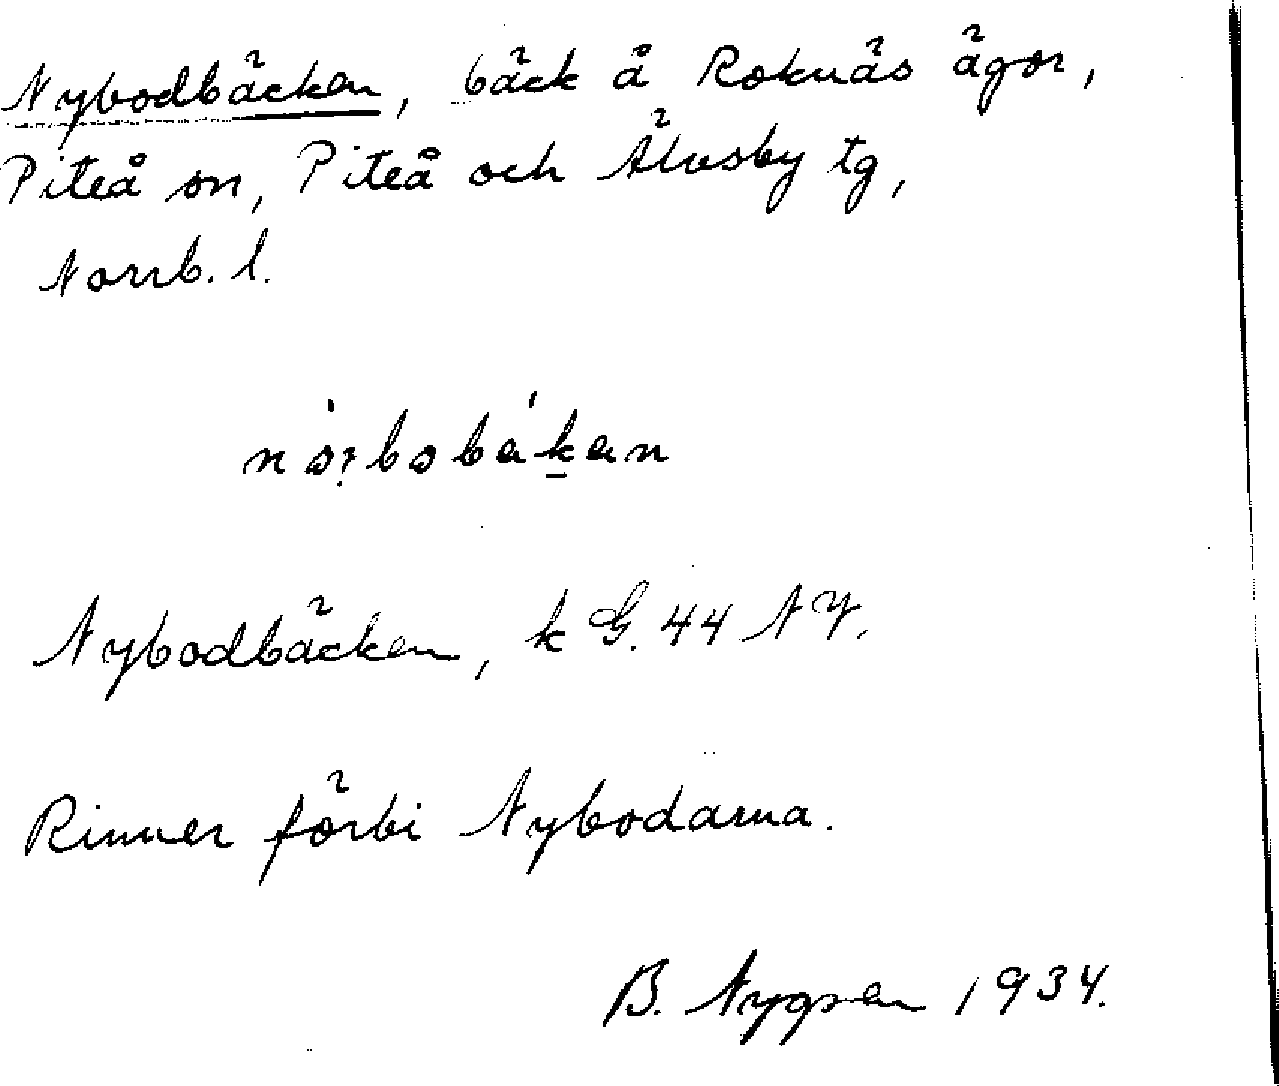 Nybodbäcken, bäck å Roknäs ägor,
Piteå sn, Piteå och Älvsby tg,
Norrb. l.
Nybodbäcken, k G. 44 NY.
Rinner förbi Nybodarna.
B. Nygren 1934.